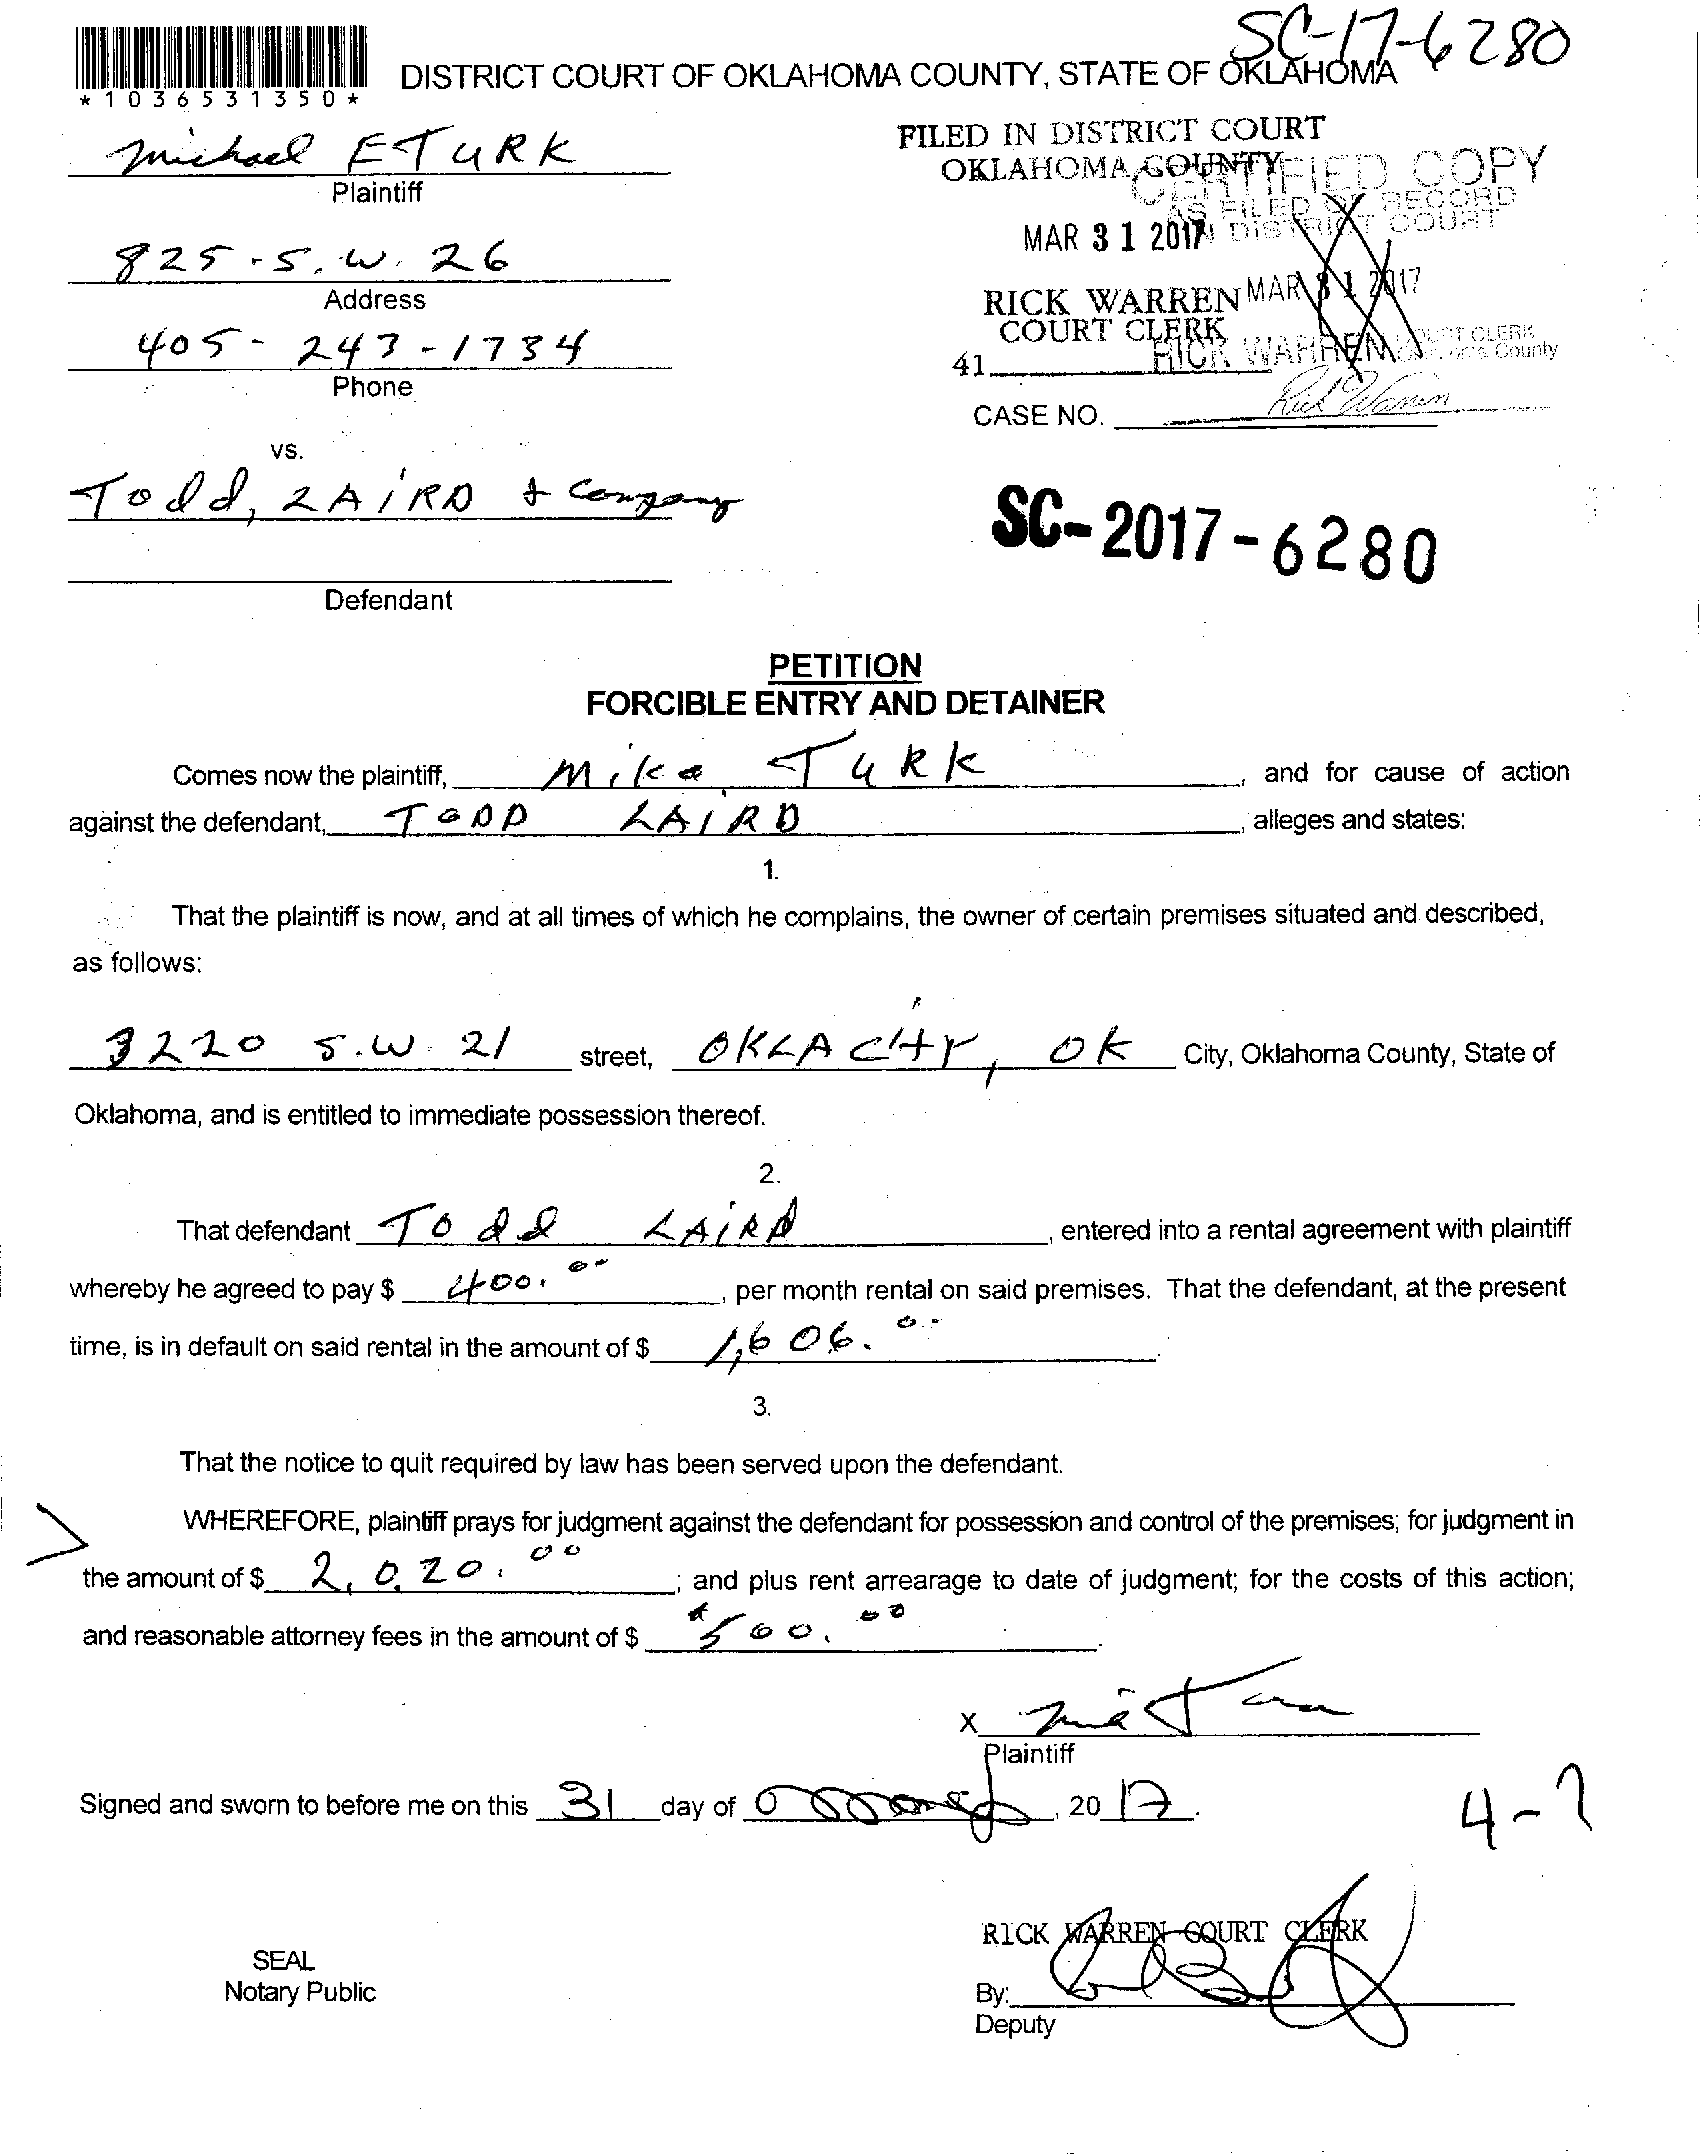 SC-17-6280
*1036531350*
DISTRICT COURT OF OKLAHOMA COUNTY, STATE OF OKLAHOMA
Michael E TURK
Plaintiff
825 - S. W. 26
Address
405 - 243 - 1734
Phone
vs.
Todd, LAIRD + Company
Defendant
FILED IN DISTRICT COURT
OKLAHOMA COUNTY
CERTIFIED COPY
AS FILED OF RECORD
IN DISTRICT COURT
MAR 31 2017
RICK WARREN
MAR 31 2017
COURT CLERK
RICK WARREN COURT CLERK
County
41
Rick Warren
CASE NO.
SC-2017-6280
PETITION
FORCIBLE ENTRY AND DETAINER
Comes now the plaintiff, Mike TURK, and for cause of action
against the defendant, TODD LAIRD, alleges and states:
1.
That the plaintiff is now, and at all times of which he complains, the owner of certain premises situated and described,
as follows:
3220 S.W. 21 street, OKLA CITY, OK City, Oklahoma County, State of
Oklahoma, and is entitled to immediate possession thereof.
2.
That defendant Todd LAIRD, entered into a rental agreement with plaintiff
whereby he agreed to pay $ 400.00, per month rental on said premises. That the defendant, at the present
time, is in default on said rental in the amount of $ 1,606.00.
3.
That the notice to quit required by law has been served upon the defendant.
WHEREFORE, plaintiff prays for judgment against the defendant for possession and control of the premises; for judgment in
the amount of $ 2,020.00; and plus rent arrearage to date of judgment; for the costs of this action;
and reasonable attorney fees in the amount of $ 500.00.
X
Plaintiff
Signed and sworn to before me on this 31 day of , 2017.
4-7
RICK WARREN COURT CLERK
SEAL
Notary Public
By:
Deputy